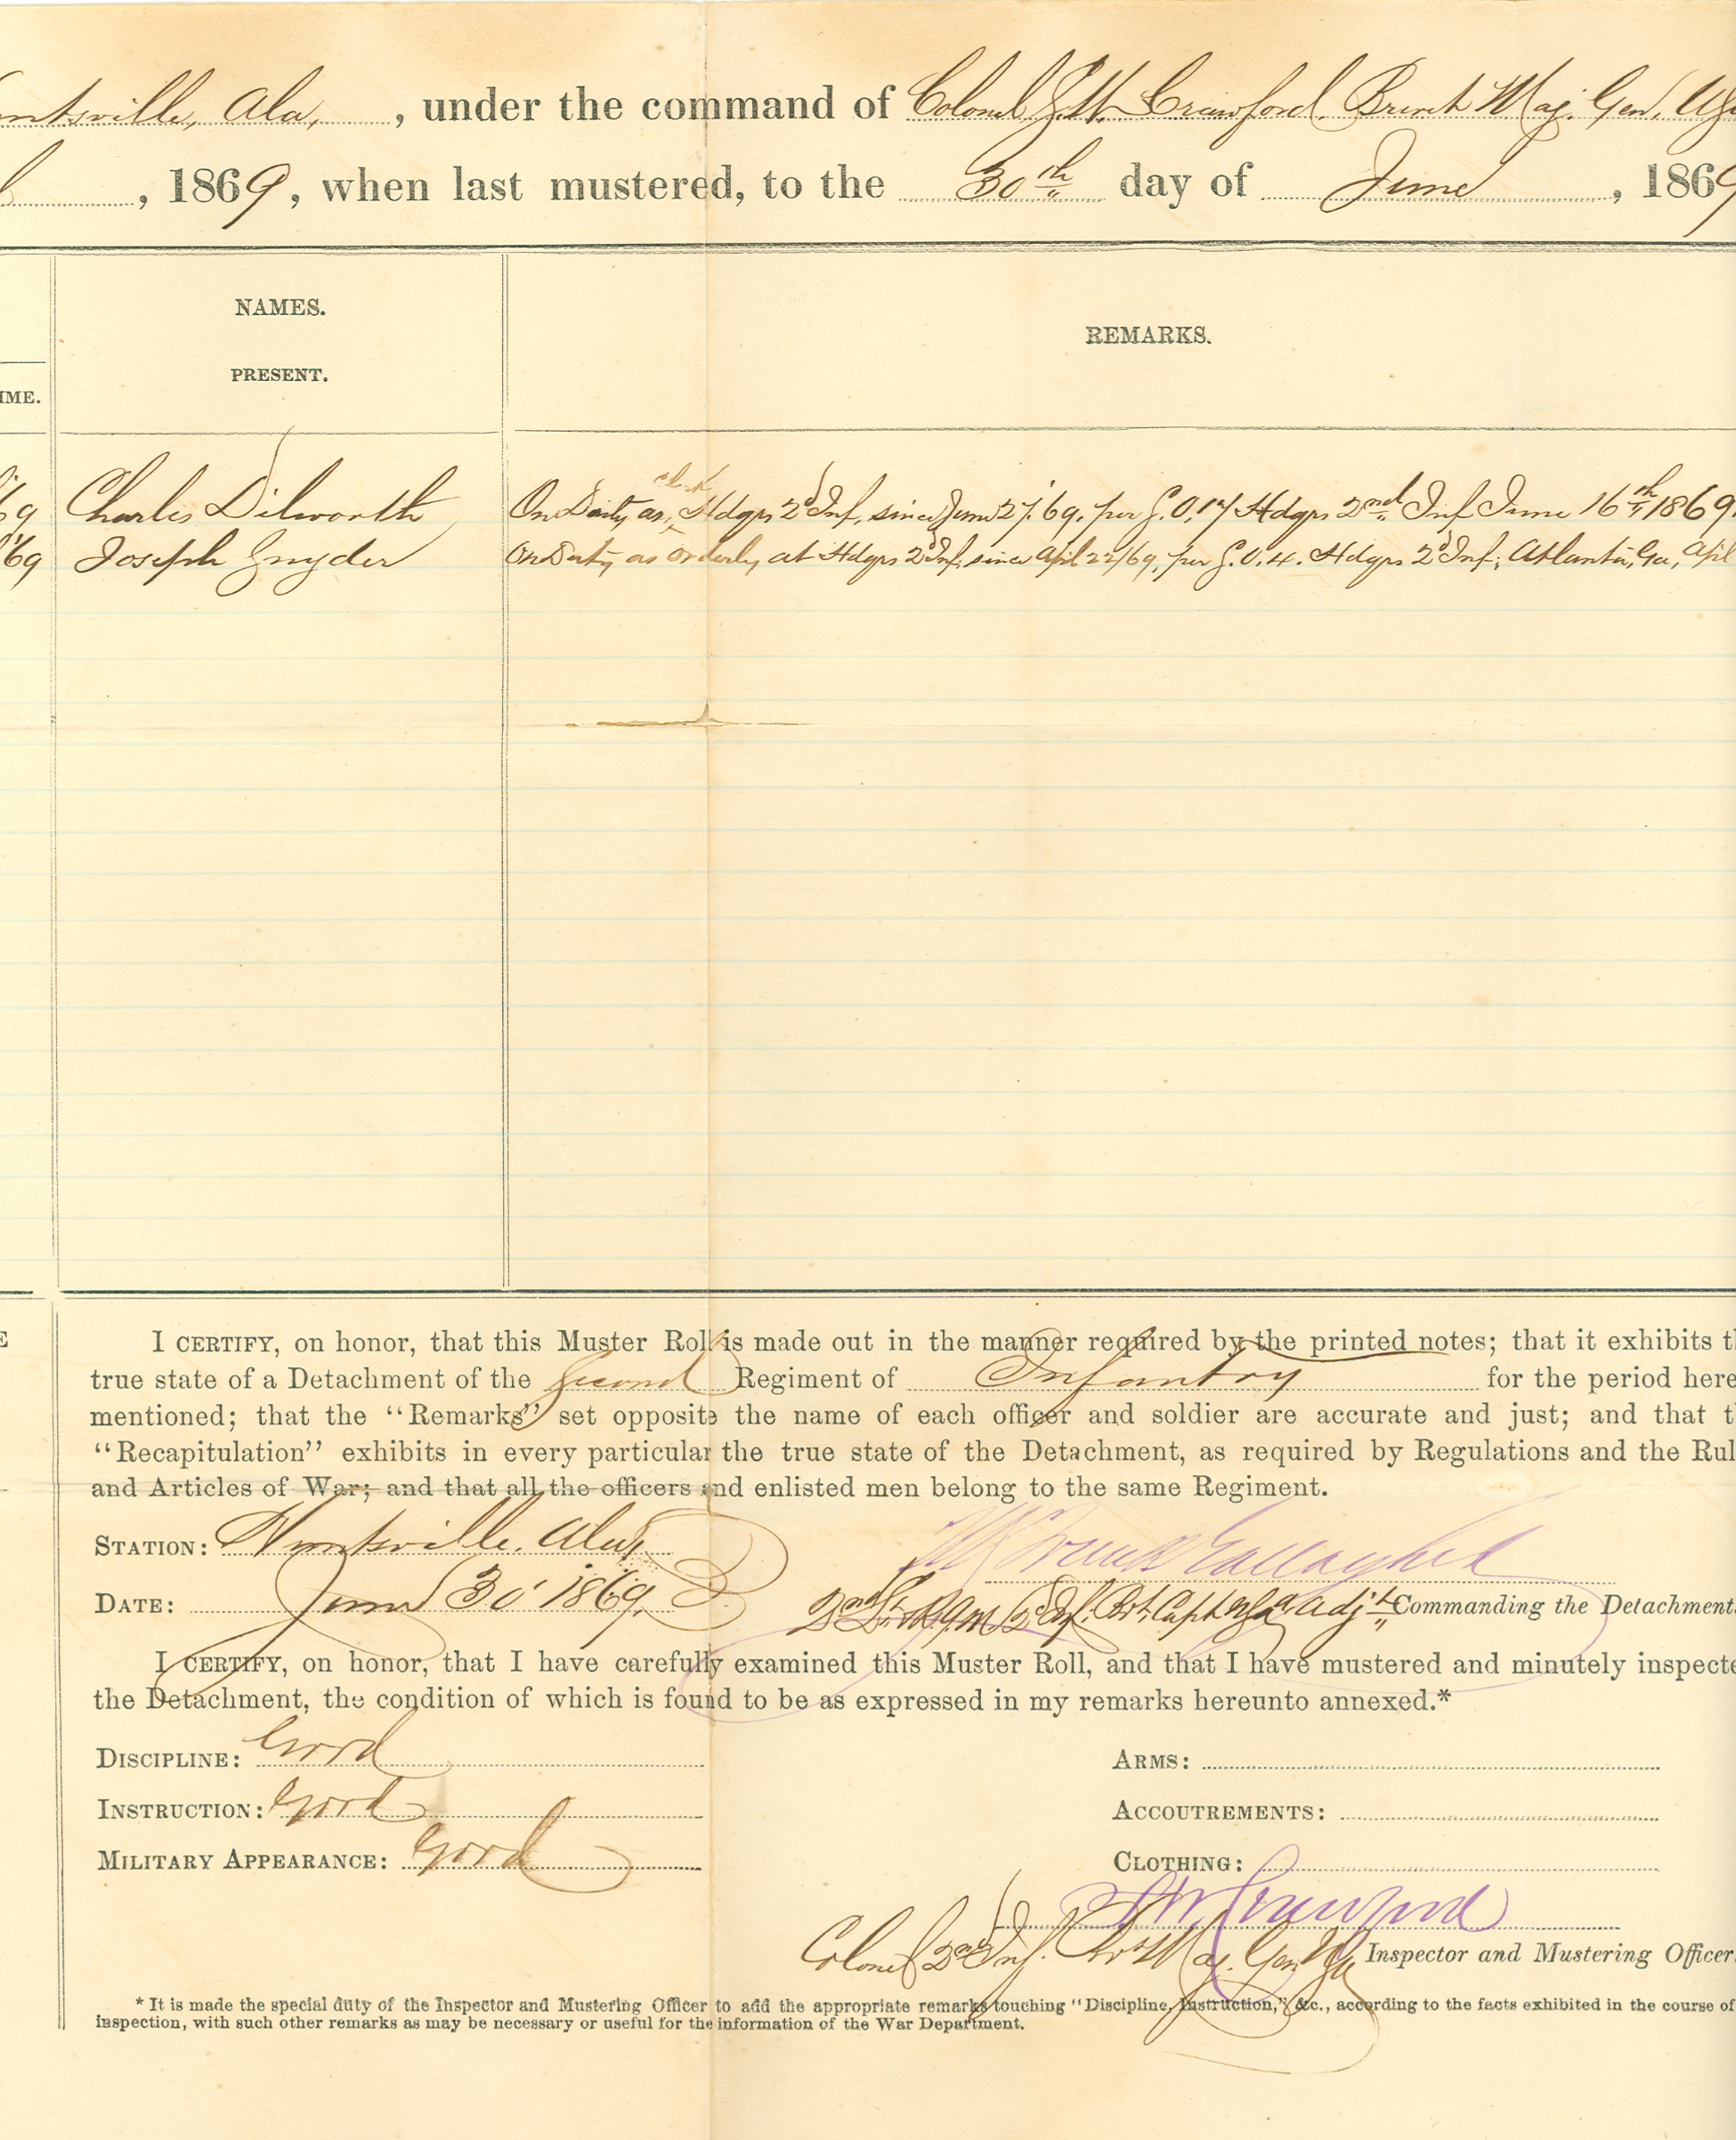 ntsville, Ala, , under the command of Colonel S. W. Crawford, Brevet Maj. Gen, USA
, 1869, when last mustered, to the 30th day of June , 1869
NAMES.
PRESENT.
REMARKS.
IME.
69 Charles Dilworth On Duty as clerk Hdqrs 2d Inf, since June 27, '69, per S.O. 17 Hdqrs 2nd Inf June 16th 1869.
'69 Joseph Snyder On Duty as orderly at Hdqrs 2d Inf, since April 22/69, per S.O. 4. Hdqrs 2d Inf, Atlanta, Ga, April
E
I CERTIFY, on honor, that this Muster Roll is made out in the manner required by the printed notes; that it exhibits t
true state of a Detachment of the Second Regiment of Infantry for the period here
mentioned; that the "Remarks" set opposite the name of each officer and soldier are accurate and just; and that t
"Recapitulation" exhibits in every particular the true state of the Detachment, as required by Regulations and the Rul
and Articles of War; and that all the officers and enlisted men belong to the same Regiment.
STATION: Huntsville, Ala,
DATE: June 30' 1869.
Gallagher
2nd Lt. & R.Q.M. 2d Inf. Bvt. Capt. USA. Adjt. Commanding the Detachment.
I CERTIFY, on honor, that I have carefully examined this Muster Roll, and that I have mustered and minutely inspecte
the Detachment, the condition of which is found to be as expressed in my remarks hereunto annexed.*
DISCIPLINE: Good ARMS:
INSTRUCTION: Good ACCOUTREMENTS:
MILITARY APPEARANCE: Good CLOTHING:
S W Crawford
Colonel 2nd Inf. Bvt Maj. Gen USA Inspector and Mustering Officer.
* It is made the special duty of the Inspector and Mustering Officer to add the appropriate remarks touching "Discipline, Instruction," &c., according to the facts exhibited in the course of
inspection, with such other remarks as may be necessary or useful for the information of the War Department.